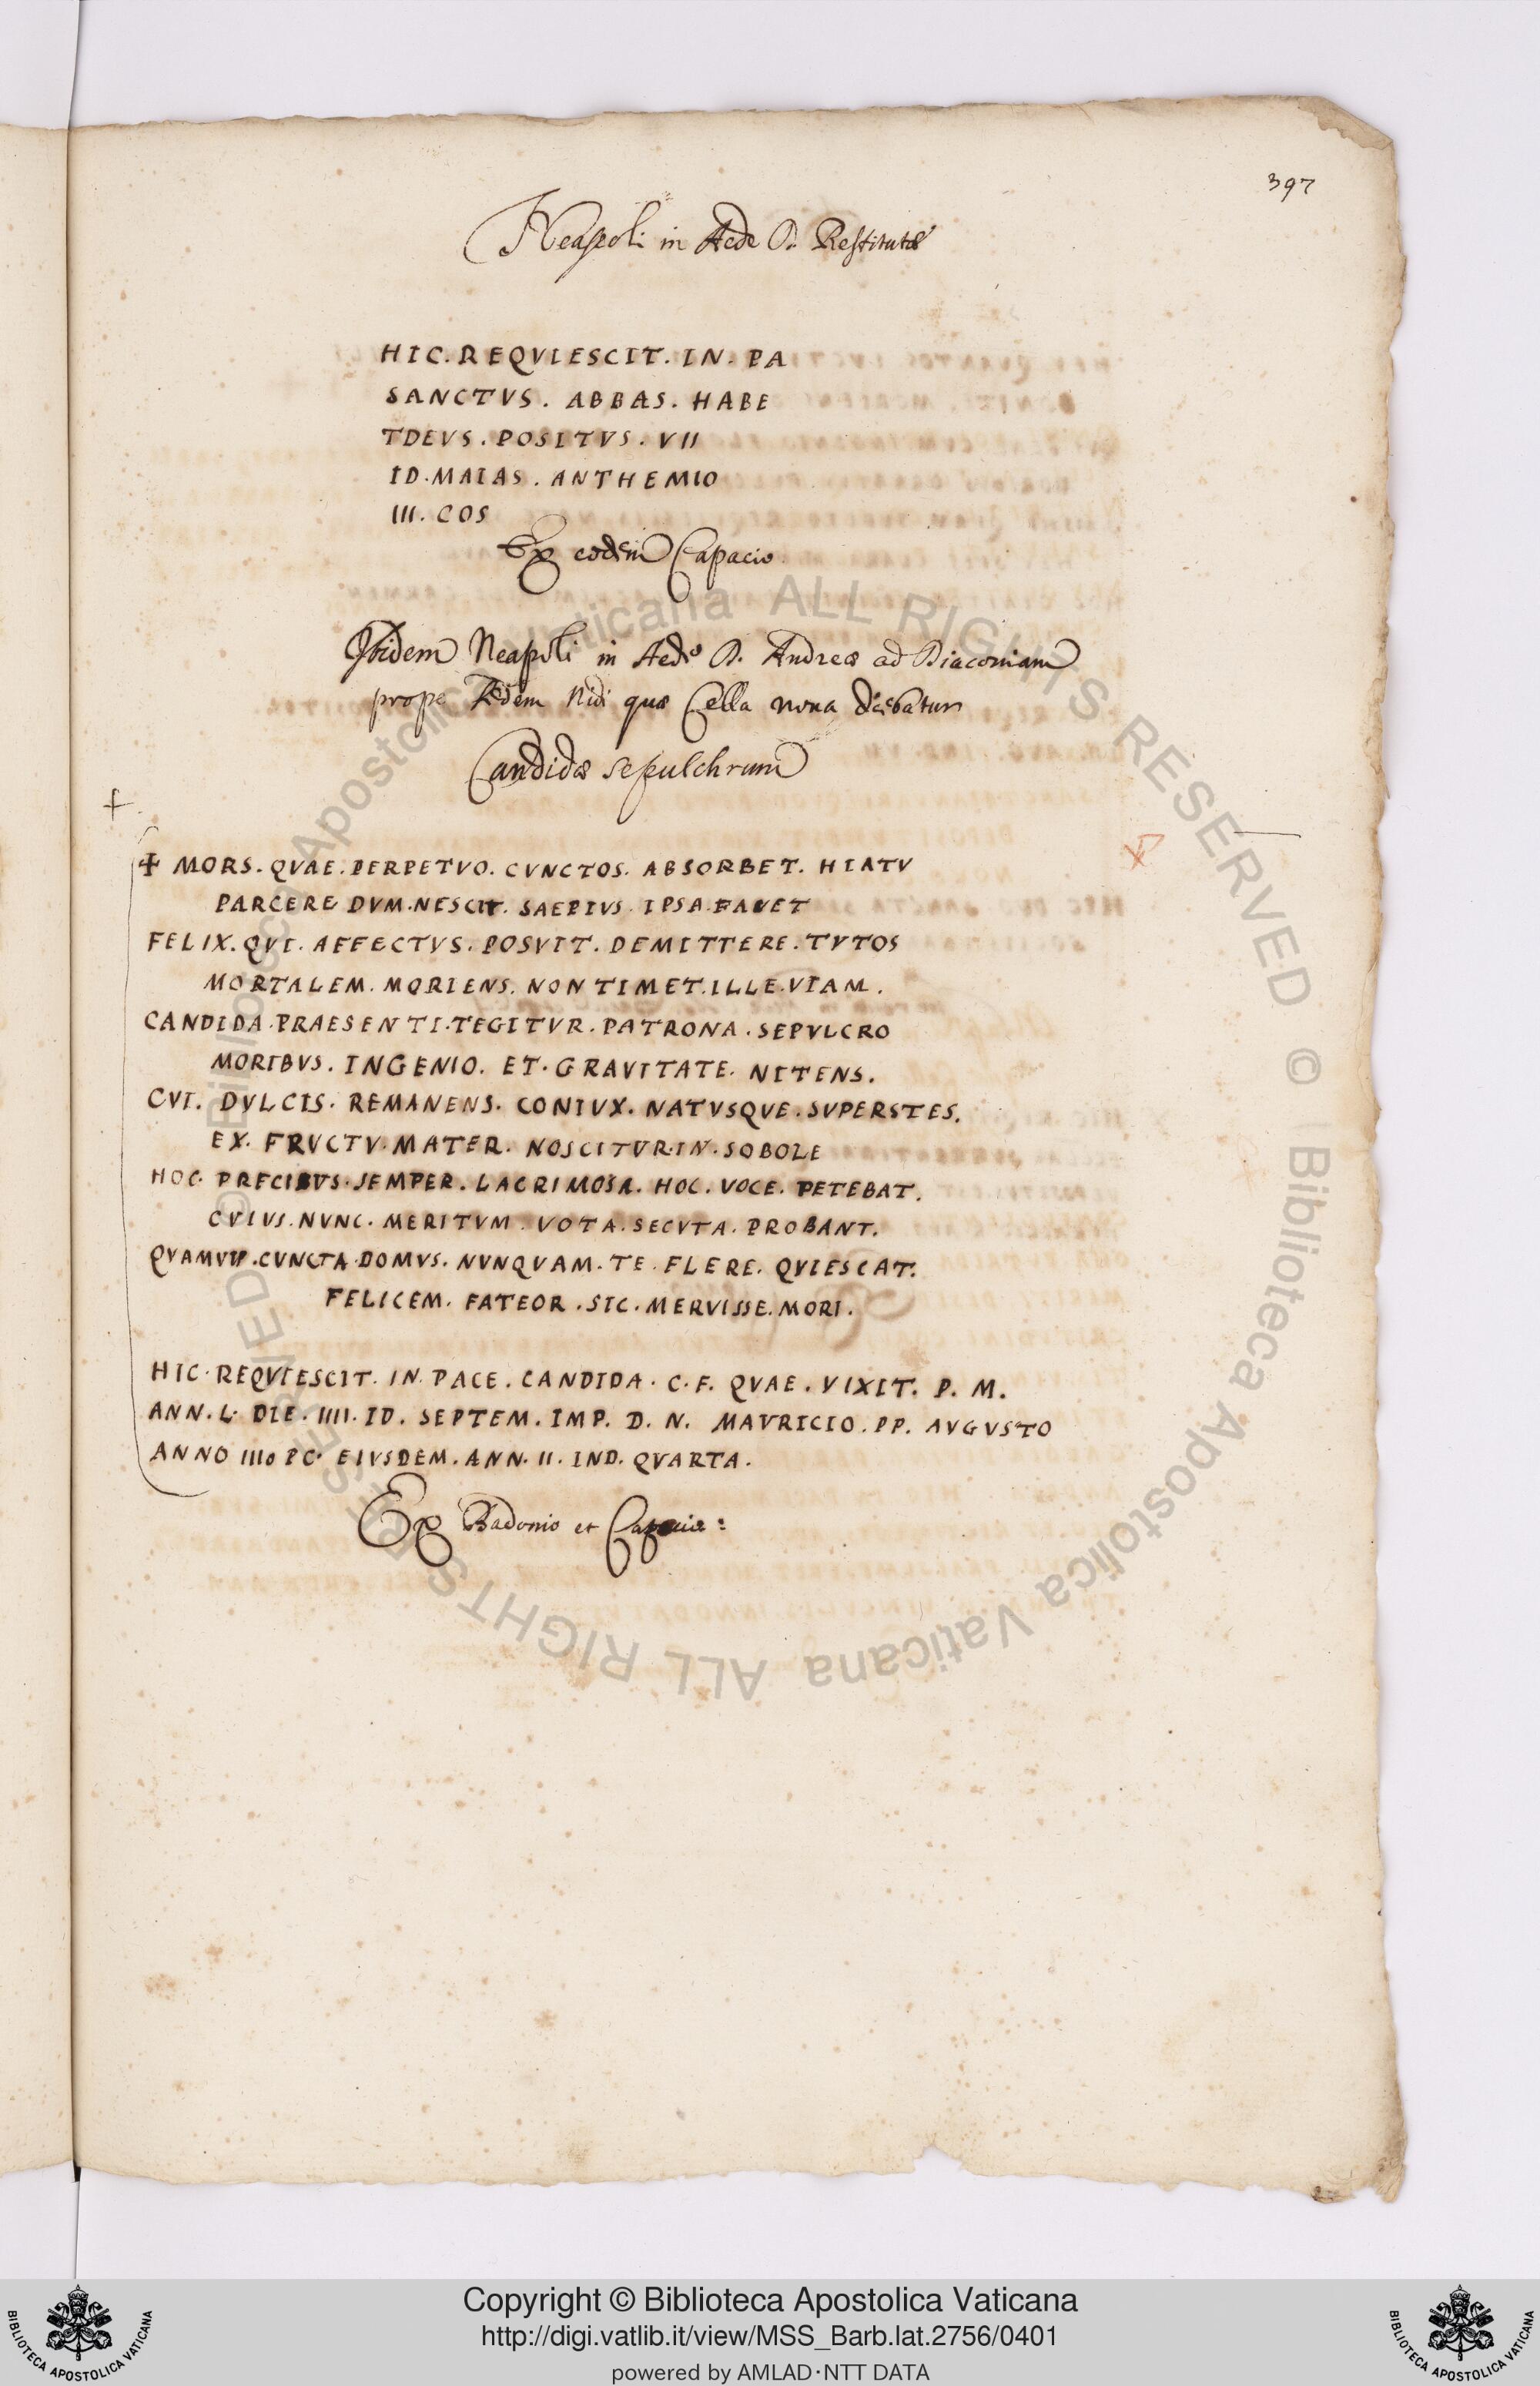 397
Neapoli in Aede D. Restitutæ
HIC. REQVIESCIT. IN. PA
SANCTVS. ABBAS. HABE
TDEVS. POSITVS. VII
ID. MAIAS. ANTHEMIO
III. COS
Ex eodem Capacio.
Ibidem Neapoli in Aede D. Andreæ ad Diaconiam
prope Aedem Nidi quæ Cella nova dicebatur
Candidæ sepulchrum
✝ MORS. QVAE. PERPETVO. CVNCTOS. ABSORBET. HIATV
PARCERE DVM. NESCIT. SAEPIVS. IPSA. FAVET
FELIX. QVI. AFFECTVS. POSVIT. DEMITTERE. TVTOS
MORTALEM. MORIENS. NON TIMET. ILLE. VIAM.
CANDIDA. PRAESENTI. TEGITVR. PATRONA. SEPVLCRO
MORIBVS. INGENIO. ET. GRAVITATE. NITENS.
CVI. DVLCIS. REMANENS. CONIVX. NATVSQVE. SVPERSTES.
EX. FRVCTV. MATER. NOSCITVR. IN. SOBOLE
HOC. PRECIBVS. SEMPER. LACRIMOSA. HOC. VOCE. PETEBAT.
CVIVS. NVNC. MERITVM. VOTA. SECVTA. PROBANT.
QVAMVIS. CVNCTA. DOMVS. NVNQVAM. TE. FLERE. QVIESCAT.
FELICEM. FATEOR. SIC. MERVISSE. MORI.
HIC. REQVIESCIT. IN. PACE. CANDIDA. C. F. QVAE. VIXIT. P. M.
ANN. L. DIE. IIII. ID. SEPTEM. IMP. D. N. MAVRICIO. PP. AVGVSTO
ANNO IIIo PC. EIVSDEM. ANN. II. IND. QVARTA.
Ex Badonio et
Copyright © Biblioteca Apostolica Vaticana
http://digi.vatlib.it/view/MSS_Barb.lat.2756/0401
powered by AMLAD·NTT DATA
BIBLIOTECA APOSTOLICA VATICANA
BIBLIOTECA APOSTOLICA VATICANA
© Biblioteca Apostolica Vaticana ALL RIGHTS RESERVED © Biblioteca Apostolica Vaticana ALL RIGHTS RESERVED